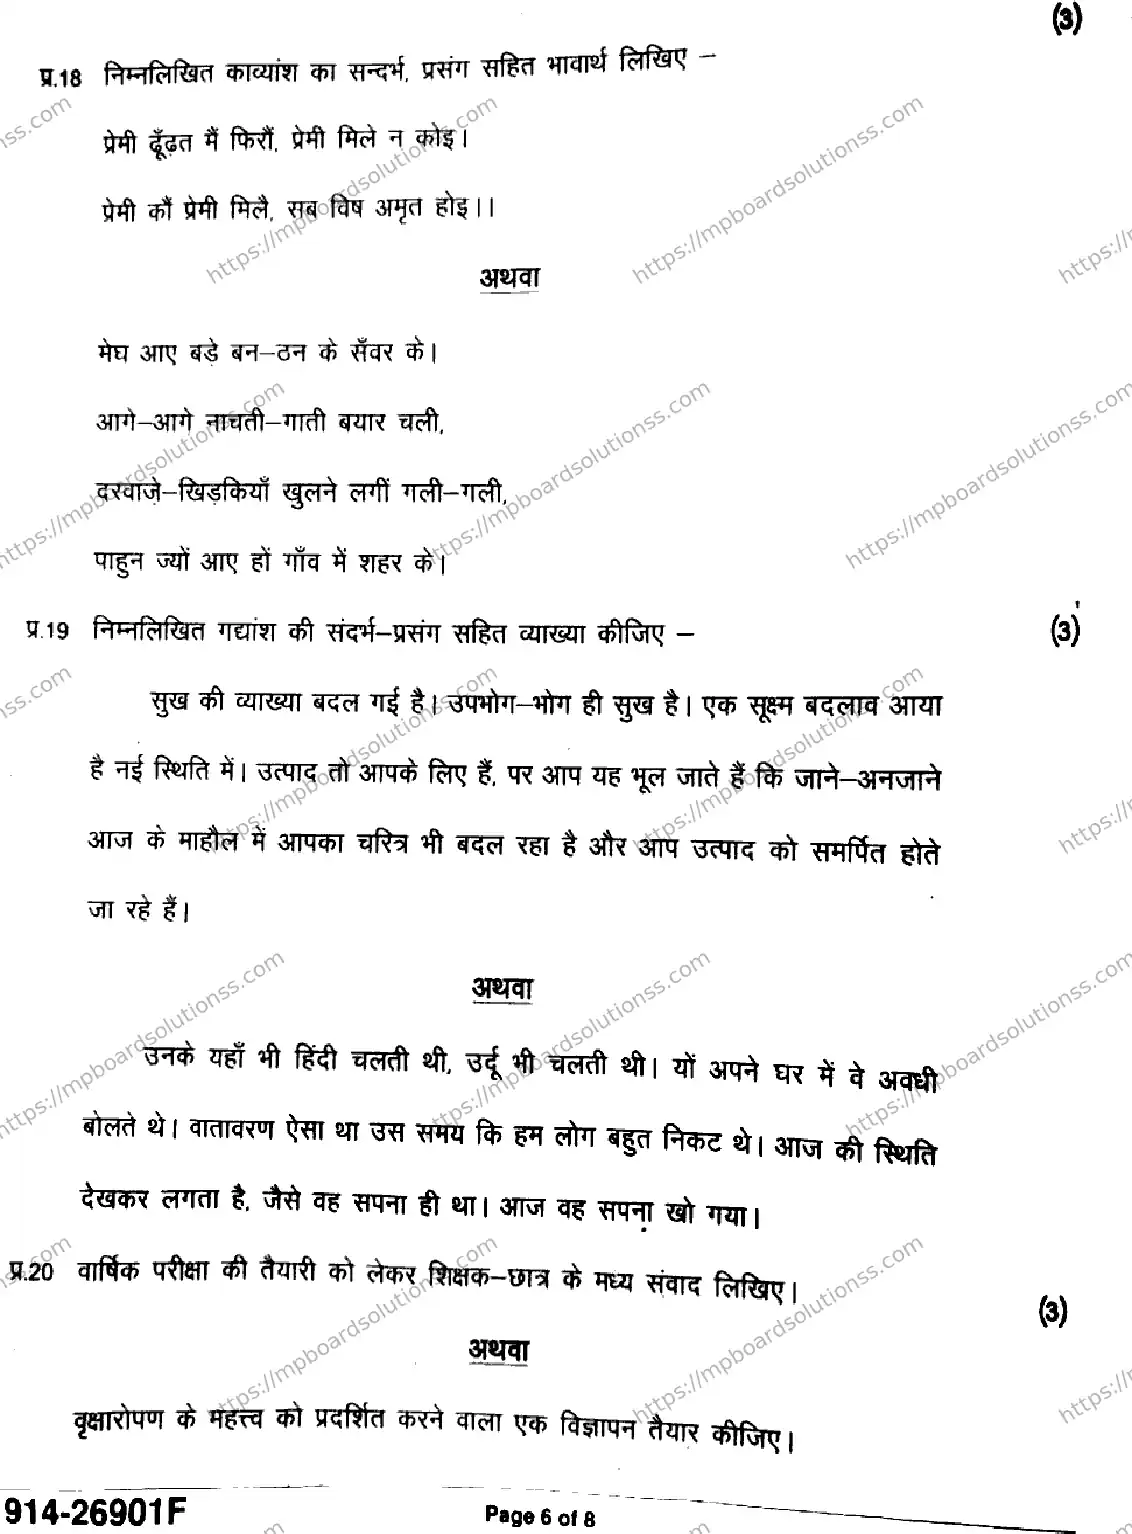 (3)
प्र.18 निम्नलिखित काव्यांश का सन्दर्भ, प्रसंग सहित भावार्थ लिखिए –
प्रेमी ढूँढ़त मैं फिरौं, प्रेमी मिले न कोइ।
प्रेमी कौं प्रेमी मिलै, सब विष अमृत होइ।।
अथवा
मेघ आए बड़े बन–ठन के सँवर के।
आगे–आगे नाचती–गाती बयार चली,
दरवाजे–खिड़कियाँ खुलने लगीं गली–गली,
पाहुन ज्यों आए हों गाँव में शहर के।
प्र.19 निम्नलिखित गद्यांश की संदर्भ–प्रसंग सहित व्याख्या कीजिए – (3)
सुख की व्याख्या बदल गई है। उपभोग–भोग ही सुख है। एक सूक्ष्म बदलाव आया
है नई स्थिति में। उत्पाद तो आपके लिए हैं, पर आप यह भूल जाते हैं कि जाने–अनजाने
आज के माहौल में आपका चरित्र भी बदल रहा है और आप उत्पाद को समर्पित होते
जा रहे हैं।
अथवा
उनके यहाँ भी हिंदी चलती थी, उर्दू भी चलती थी। यों अपने घर में वे अवधी
बोलते थे। वातावरण ऐसा था उस समय कि हम लोग बहुत निकट थे। आज की स्थिति
देखकर लगता है, जैसे वह सपना ही था। आज वह सपना खो गया।
प्र.20 वार्षिक परीक्षा की तैयारी को लेकर शिक्षक–छात्र के मध्य संवाद लिखिए।
(3)
अथवा
वृक्षारोपण के महत्त्व को प्रदर्शित करने वाला एक विज्ञापन तैयार कीजिए।
914-26901F Page 6 of 8
https://mpboardsolutionss.com